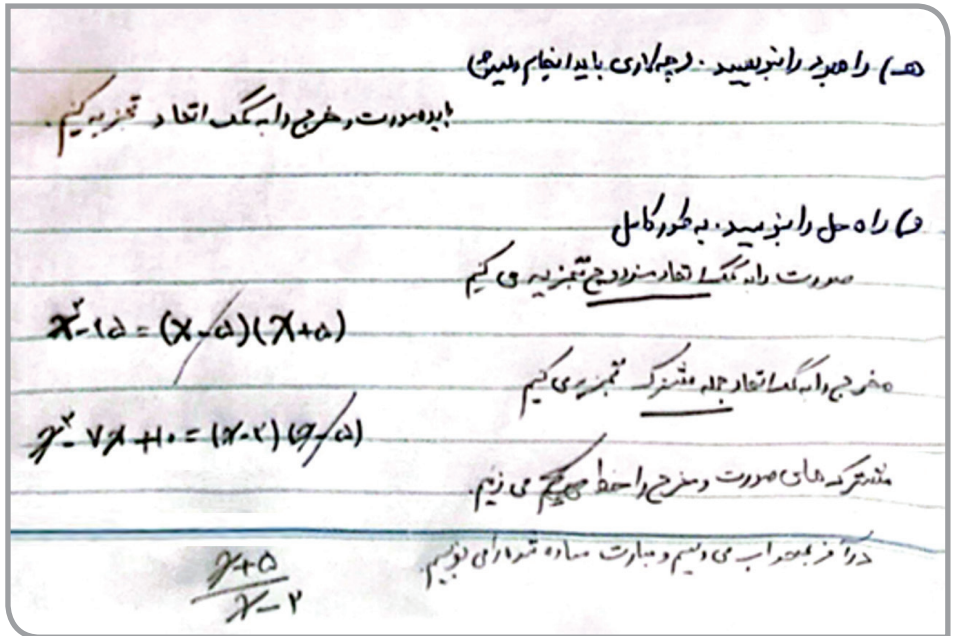 هـ) راهبرد را بنویسید. چه کاری باید انجام دهیم؟
باید صورت و مخرج را به کمک اتحاد تجزیه کنیم.
و) راه حل را بنویسید. به طور کامل
صورت را به کمک اتحاد مزدوج تجزیه می کنیم
x²-۲۵ = (x-۵)(x+۵)
مخرج را به کمک اتحاد جمله مشترک تجزیه می کنیم
x²-۷x+۱۰ = (x-۲)(x-۵)
مشترک های صورت و مخرج را خط می زنیم.
در آخر به جواب می رسیم و عبارت ساده شده را می نویسیم.
x+۵
x-۲